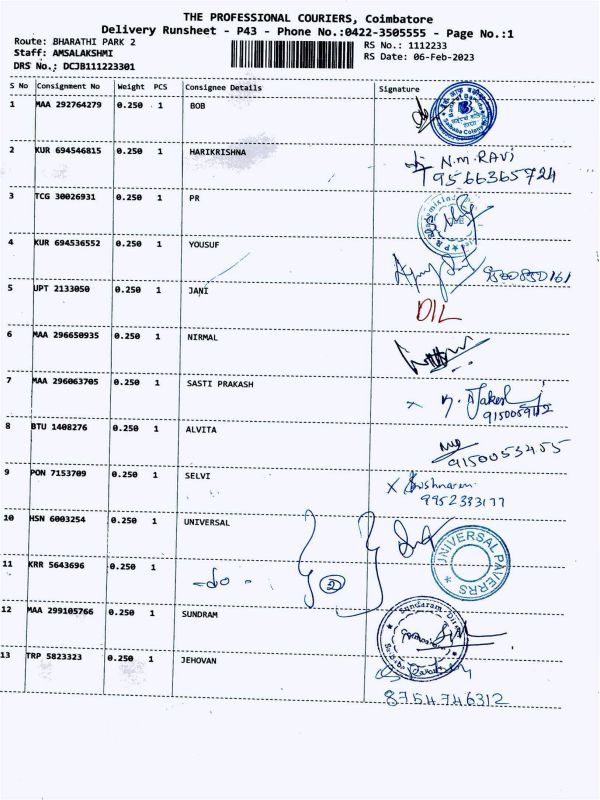 THE PROFESSIONAL COURIERS, Coimbatore
Delivery Runsheet - P43 - Phone No.:0422-3505555 - Page No.:1
Route: BHARATHI PARK 2
Staff: AMSALAKSHMI
DRS No.: DCJB111223301
RS No.: 1112233
RS Date: 06-Feb-2023
S No Consignment No Weight PCS Consignee Details Signature
1 MAA 292764279 0.250 1 BOB
2 KUR 694546815 0.250 1 HARIKRISHNA N.M.RAVI
9566365724
3 TCG 30026931 0.250 1 PR
4 KUR 694536552 0.250 1 YOUSUF
5 UPT 2133050 0.250 1 JANI DIL
6 MAA 296650935 0.250 1 NIRMAL
7 MAA 296063705 0.250 1 SASTI PRAKASH
8 BTU 1408276 0.250 1 ALVITA
9150053455
9 PON 7153709 0.250 1 SELVI
9952333177
10 HSN 6003254 0.250 1 UNIVERSAL
UNIVERSAL PAVERRS
11 KRR 5643696 0.250 1 -do- 2
12 MAA 299105766 0.250 1 SUNDRAM
13 TRP 5823323 0.250 1 JEHOVAN
8754746312